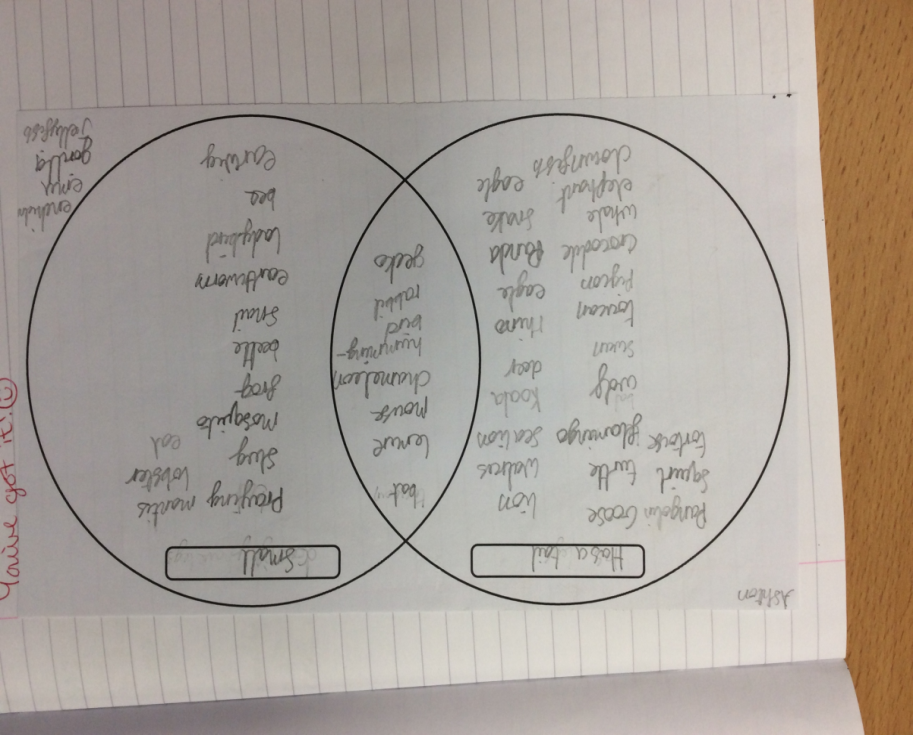 Ashton
Has a tail
Pangolin Goose lion
Squirl turtle Walrus
tortoise flamingo Sealion
wolf koala
swan deer
toucan rhino
Pigeon eagle
Crocodile Panda
whale snake
elephant eagle
clownfish
bat
lemure
mouse
chameleon
humming-
bird
rabbit
gecko
Small
Praying mantis
lobster
Slug
eel
mosquito
frog
beetle
Snail
earthworm
ladybird
bee
earwig
emu
gorilla
Jellyfish
You've got it!